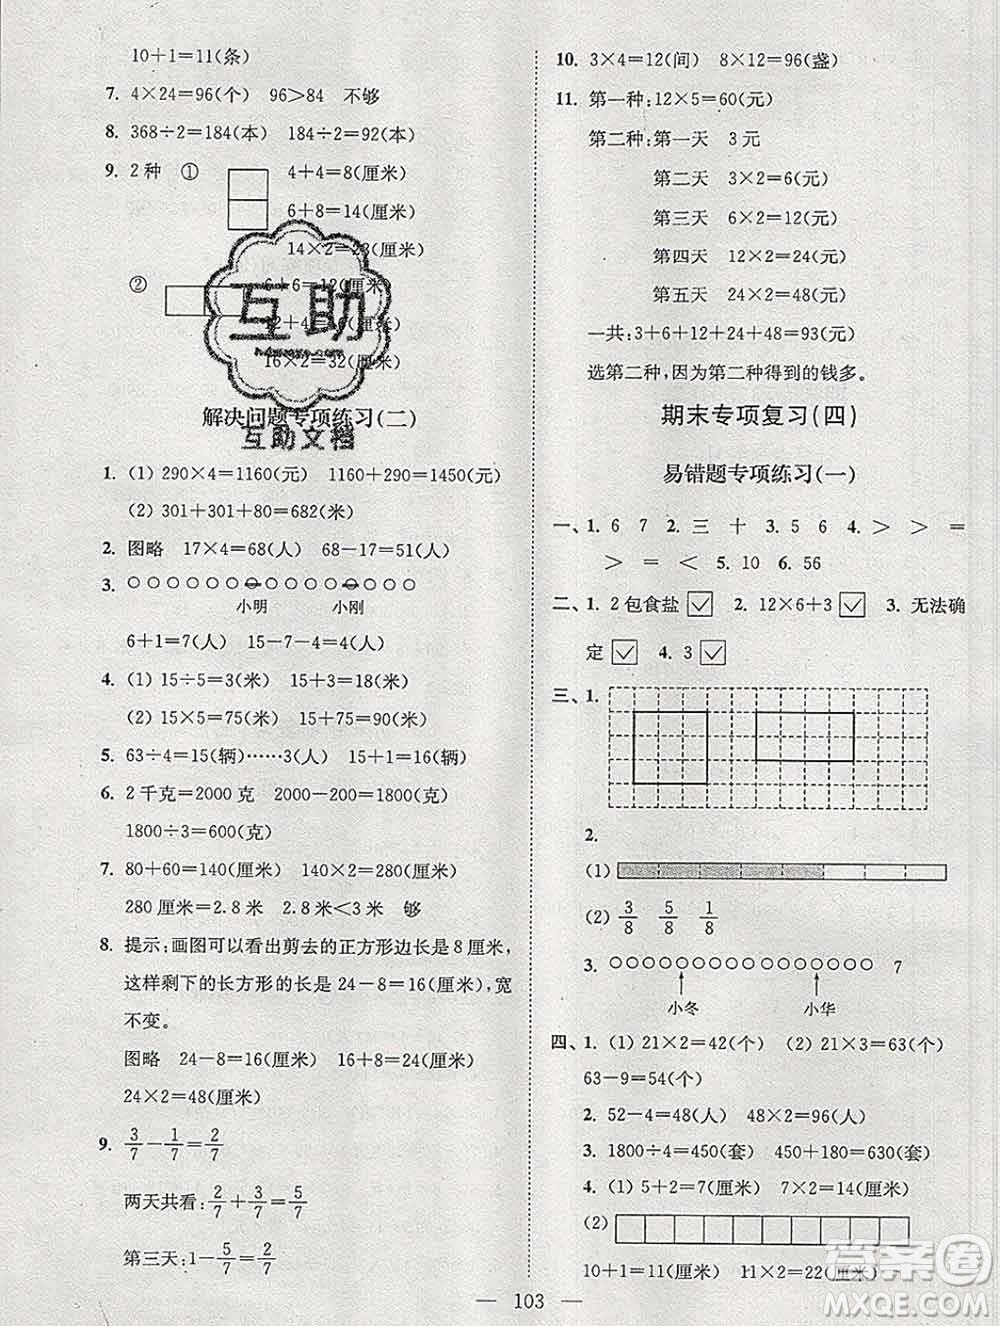 10+1=11(条)
7. 4×24=96(个) 96>84 不够
8. 368÷2=184(本) 184÷2=92(本)
9. 2种 ① 4+4=8(厘米)
6+8=14(厘米)
14×2=28(厘米)
② 6+6=12(厘米)
12+4=16(厘米)
16×2=32(厘米)
互助
互助文档
解决问题专项练习(二)
1. (1) 290×4=1160(元) 1160+290=1450(元)
(2) 301+301+80=682(米)
2. 图略 17×4=68(人) 68-17=51(人)
3. ○○○○○○○○○○○○○○○
小明 小刚
6+1=7(人) 15-7-4=4(人)
4. (1) 15÷5=3(米) 15+3=18(米)
(2) 15×5=75(米) 75+15=90(米)
5. 63÷4=15(辆)……3(人) 15+1=16(辆)
6. 2千克=2000克 2000-200=1800(克)
1800÷3=600(克)
7. 80+60=140(厘米) 140×2=280(厘米)
280厘米=2.8米 2.8米<3米 够
8. 提示:画图可以看出剪去的正方形边长是8厘米,
这样剩下的长方形的长是24-8=16(厘米),宽
不变。
图略 24-8=16(厘米) 16+8=24(厘米)
24×2=48(厘米)
9. 3/7-1/7=2/7
两天共看:2/7+3/7=5/7
第三天:1-5/7=2/7
10. 3×4=12(间) 8×12=96(盏)
11. 第一种:12×5=60(元)
第二种:第一天 3元
第二天 3×2=6(元)
第三天 6×2=12(元)
第四天 12×2=24(元)
第五天 24×2=48(元)
一共:3+6+12+24+48=93(元)
选第二种,因为第二种得到的钱多。
期末专项复习(四)
易错题专项练习(一)
一、1. 6 7 2. 三 十 3. 5 6 4. > > =
> = < 5. 10 6. 56
二、1. 2包食盐☑ 2. 12×6+3☑ 3. 无法确
定☑ 4. 3☑
三、1.
2.
(1)
(2) 3/8 5/8 1/8
3. ○○○○○○○○○○○○○○○○○○○ 7
小冬 小华
四、1. (1) 21×2=42(个) (2) 21×3=63(个)
63-9=54(个)
2. 52-4=48(人) 48×2=96(人)
3. 1800÷4=450(套) 450+180=630(套)
4. (1) 5+2=7(厘米) 7×2=14(厘米)
(2)
10+1=11(厘米) 11×2=22(厘米)
— 103 —
答案圈
MXQE.COM